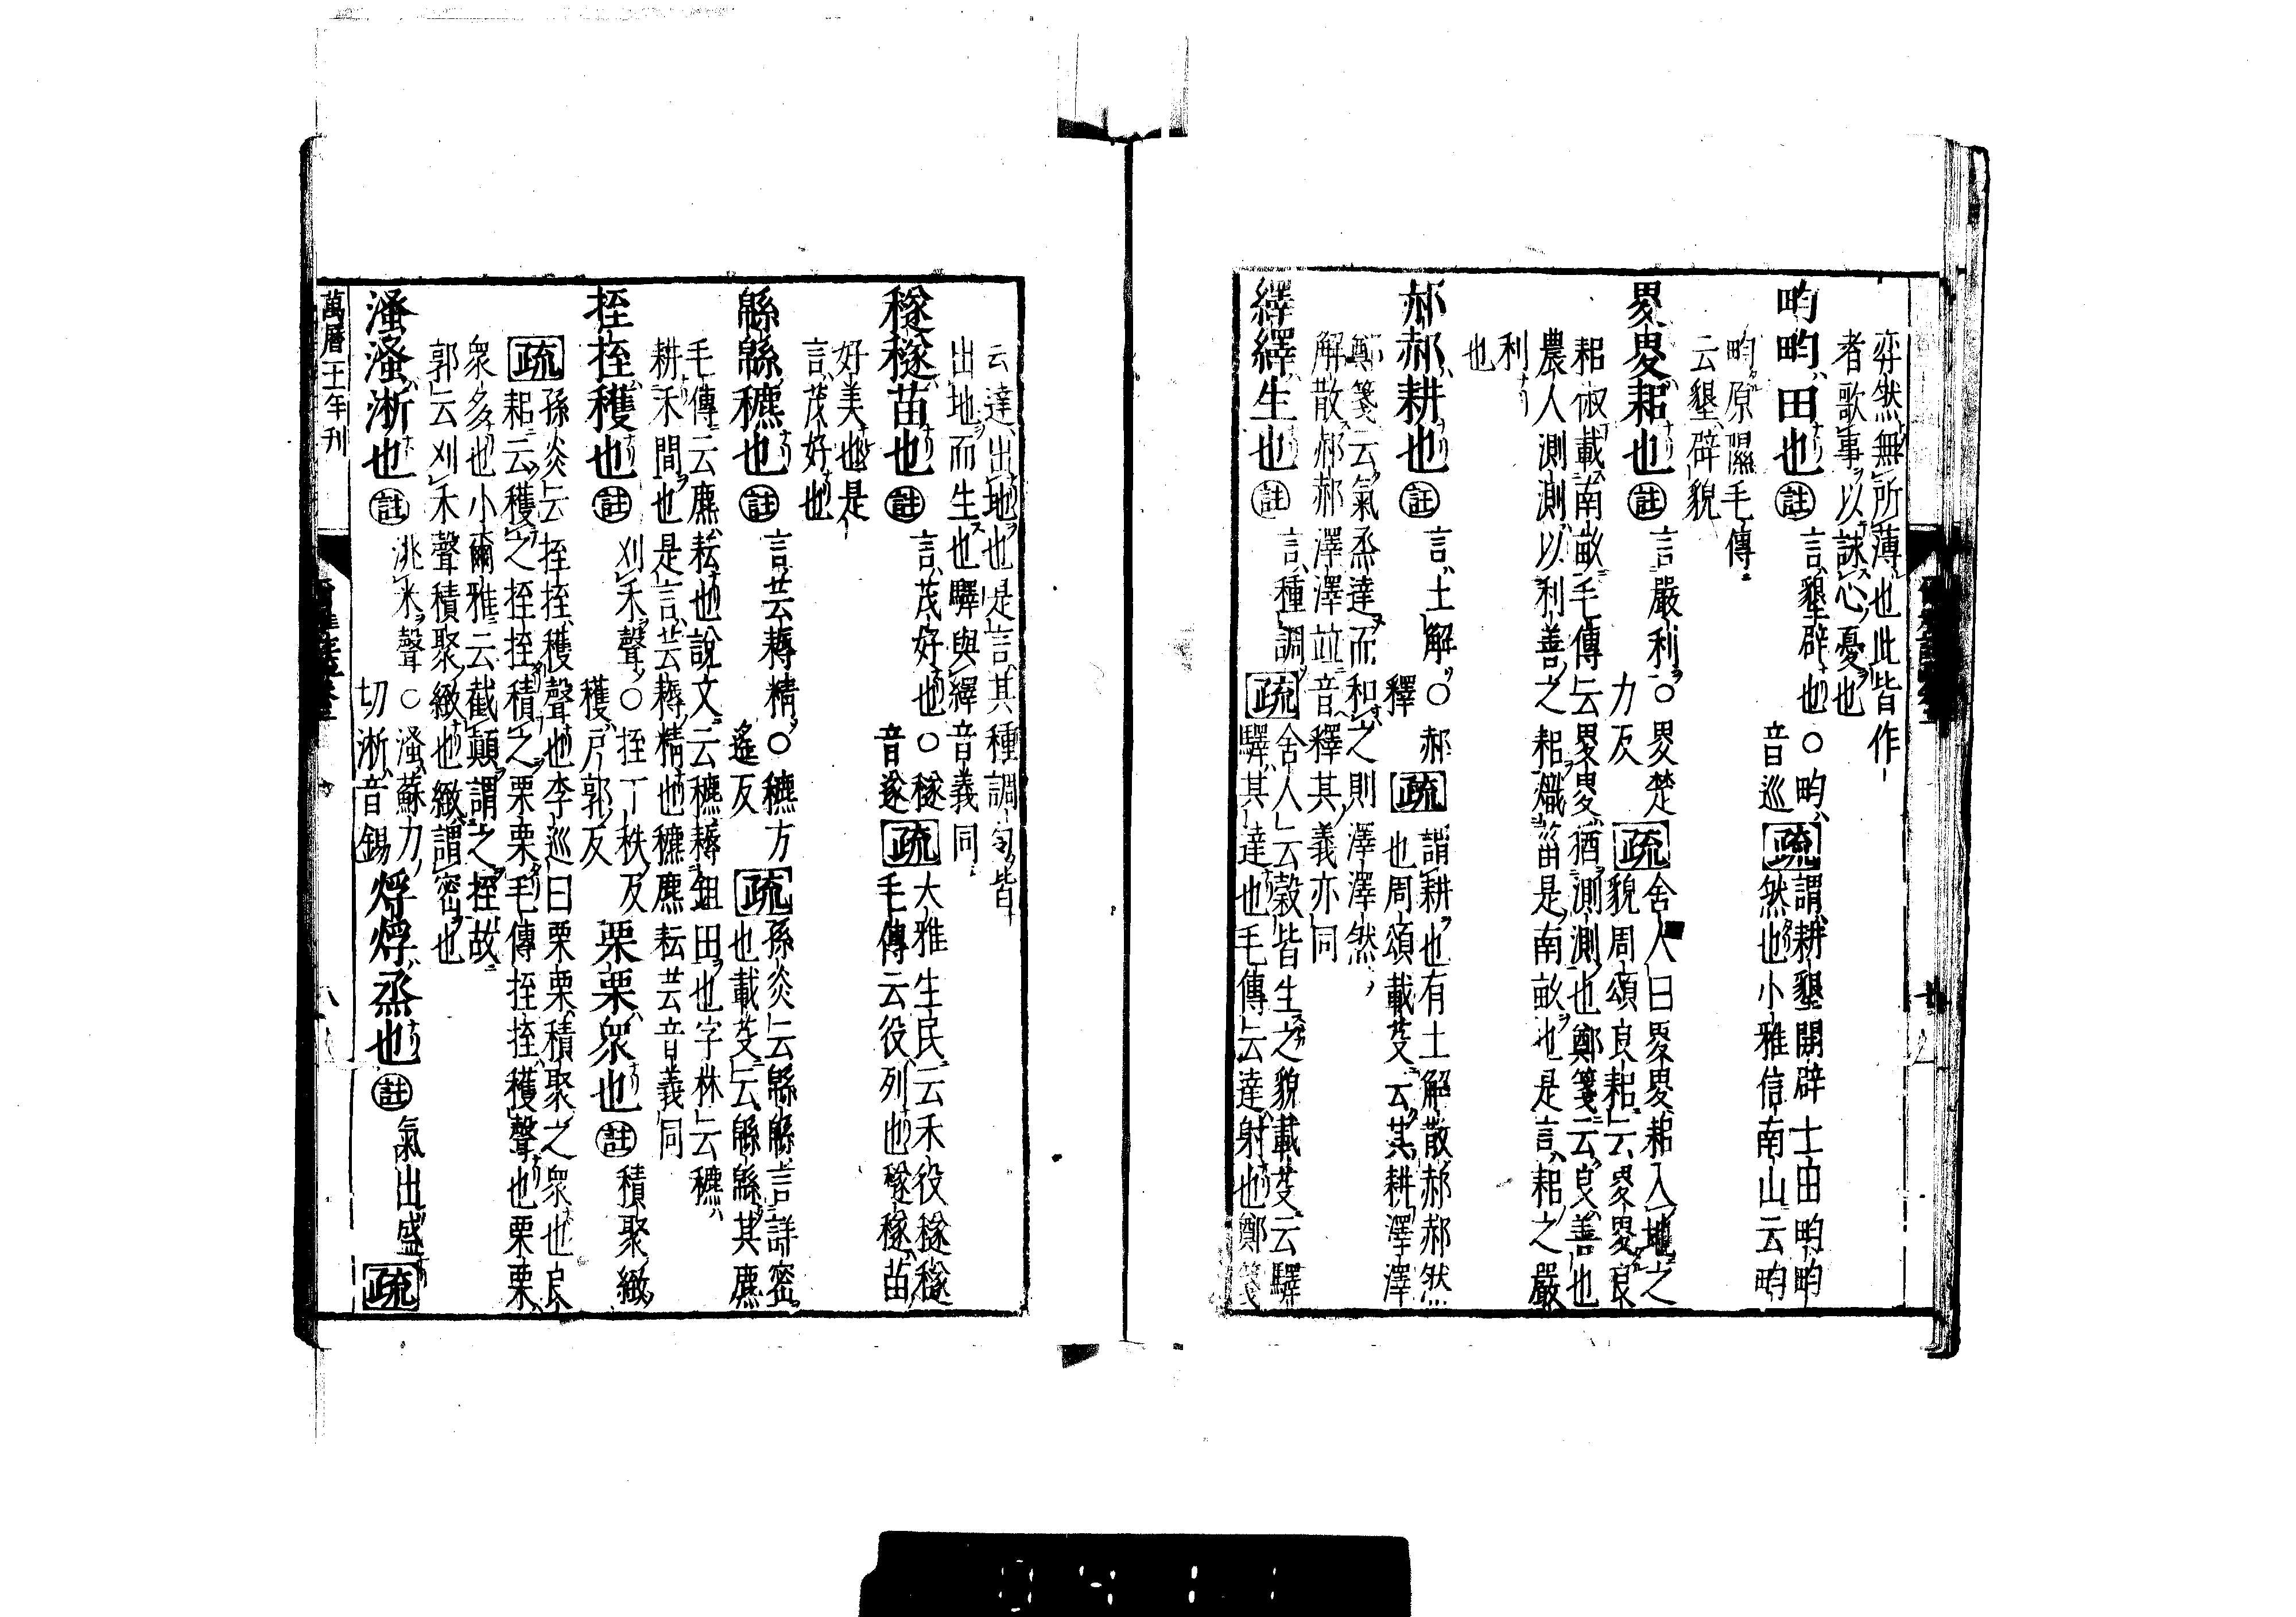 弈然無所薄也此皆作
者歌事以詠心憂也
畇畇田也 註 言墾辟也○畇音巡 疏 謂耕墾開辟土田畇畇
然也小雅信南山云畇
畇原隰毛傳
云墾辟貌
畟畟耜也 註 言嚴利○畟楚力反 疏 舍人曰畟畟耜入地之
貌周頌良耜云畟畟良
耜俶載南畝毛傳云畟畟猶測測也鄭箋云良善也
農人測測以利善之耜熾菑是南畝也是言耜之嚴
利
也
郝郝耕也 註 言土解○郝釋 疏 謂耕也有土解散郝郝然
也周頌載芟云其耕澤澤
鄭箋云氣烝達而和之則澤澤然
解散郝郝澤澤並音釋其義亦同
繹繹生也 註 言種調 疏 舍人云穀皆生之貌載芟云驛
驛其達也毛傳云達射也鄭箋
云達出地也是言其種調勻皆
出地而生也驛與繹音義同
穟穟苗也 註 言茂好也○穟音遂 疏 大雅生民云禾役穟穟
毛傳云役列也穟穟苗
好美也是
言茂好也
緜緜穮也 註 言芸耨精○穮方遙反 疏 孫炎云緜緜言詳密
也載芟云緜緜其麃
毛傳云麃耘也說文云穮耨鉏田也字林云穮
耕禾間也是言芸耨精也穮麃耘芸音義同
挃挃穫也 註 刈禾聲○挃丁秩反穫戶郭反 栗栗衆也 註 積聚緻
疏 孫炎云挃挃穫聲也李巡曰栗栗積聚之衆也良
耜云穫之挃挃積之栗栗毛傳挃挃穫聲也栗栗
衆多也小爾雅云截顛謂之挃故
郭云刈禾聲積聚緻也緻謂密也
溞溞淅也 註 洮米聲○溞蘇刀切淅音錫 烰烰烝也 註 氣出盛 疏
萬曆壬午年刊